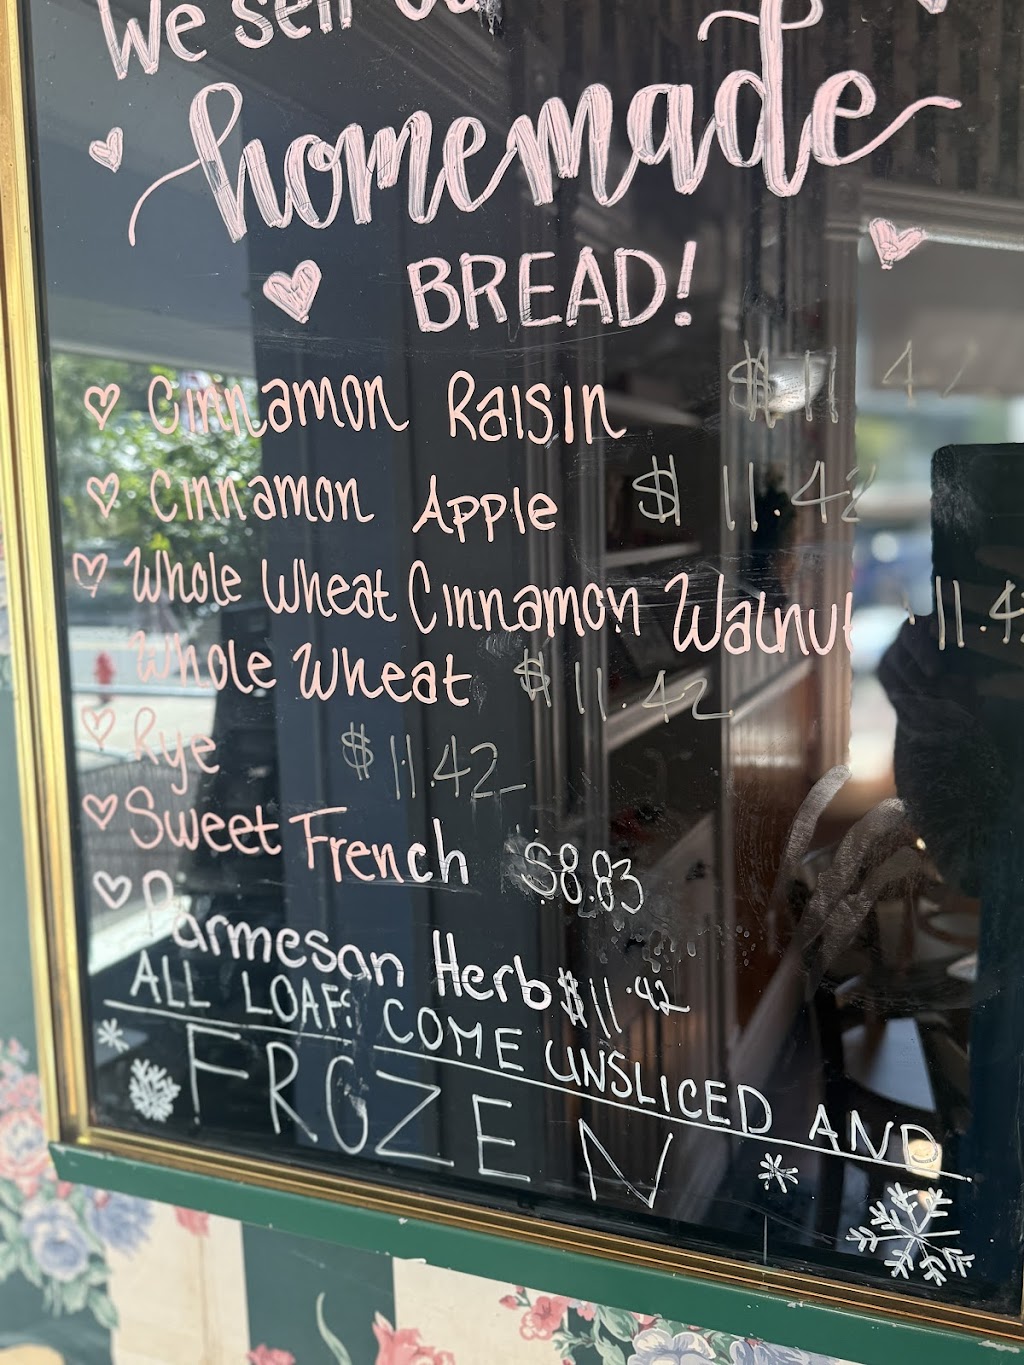 We sell our
homemade
BREAD!
Cinnamon Raisin $11.42
Cinnamon Apple $11.42
Whole Wheat Cinnamon Walnut 11.42
Whole Wheat $11.42
Rye $11.42
Sweet French $8.83
Parmesan Herb $11.42
ALL LOAFS COME UNSLICED AND
FROZEN